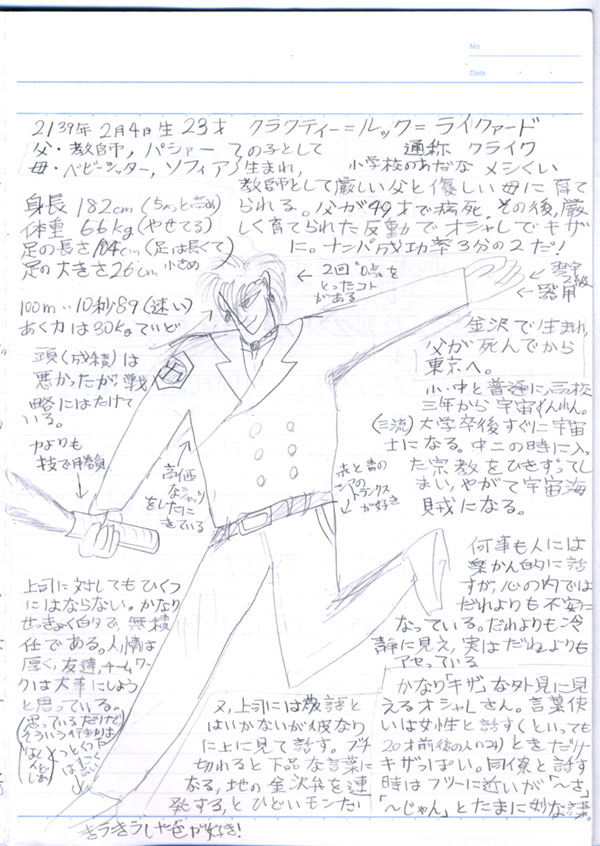 No.
Date
2139年 2月4日生 23才 クラクティー=ルック=ライクァード
父・教師, パシャー
母・ベビーシッター, ソフィア
その子として
生まれ,
通称 クライク
小学校のあだな メシくい
教師として厳しい父と優しい母に育て
られる。父が49才で病死。その後,厳
しく育てられた反動でオシャレでキザ
に。ナンパ成功率3分の2だ!
身長 182cm (ちょっと高め)
体重 66kg (やせてる)
足の長さ104cm (足は長くて)
足の大きさ26cm 小さめ
100m‥10秒89 (速い)
あく力は30kgていど
←2回0点を
とったコト
がある
2級
器用
頭(成績)は
悪かったが,戦
略にはたけて
いる。
力よりも
技で勝負
高価
なシャツ
をした に
きている
赤と青の
トランクス
が好き
金沢で生まれ,
父が死んでから
東京へ。
小・中と普通に,高校
三年から宇宙
(三流)大学卒後すぐに宇宙
士になる。中二の時に入っ
た宗教をひきずってし
まい,やがて宇宙海
賊になる。
何事も人には
楽かん的に話
すが,心の内では
だれよりも不安に
なっている。だれよりも冷
静に見え,実はだれよりも
アセっている
上司に対してもひくつ
にはならない。かなり
せっきょく的で,無積
任である。人情は
厚く,友達,チームワー
クは大事にしよう
と思っている。
(思っているだけで
そういう行きすぎは
又,上司には敬語と
はいかないが彼なり
に上に見て話す。ブチ
切れると下品な言葉に
なる,地の金沢弁を連
発する,とひどいモンだい
かなり「キザ」な外見に見
えるオシャレさん。言葉使
いは女性と話す(といっても
20才前後の人のみ)ときだけ
キザっぽい。同僚と話す
時はフツーに近いが「〜さ」
「〜じゃん」とたまに妙な言葉。
きラきラしヤ色が好き!